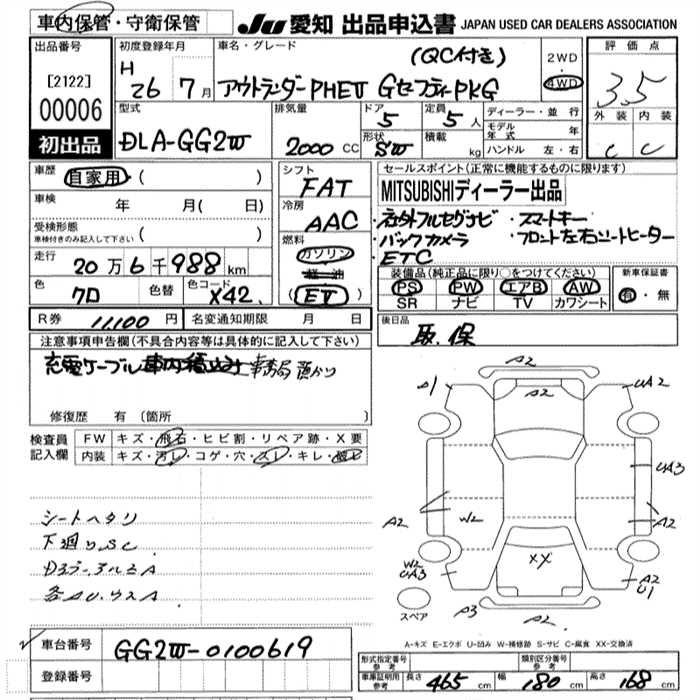 車内保管・守衛保管
JU 愛知 出品申込書 JAPAN USED CAR DEALERS ASSOCIATION
出品番号
[2122]
00006
初出品
初度登録年月
H 26 7月
車名・グレード
(QC付き)
アウトランダーPHEV GセフティPKG
2WD
4WD
評価点
3.5
外装 内装
C C
型式
DLA-GG2W
排気量
2000 CC
ドア
5
形状
SW
定員
5人
積載
kg
ディーラー・並行
モデル年式 年
ハンドル 左・右
車歴
自家用 ( )
車検
年 月( 日)
受検形態
車検付きのみ記入して下さい ( )
走行
20万6千988km
色
クロ
色替
色コード
X42
シフト
FAT
冷房
AAC
燃料
ガソリン
軽油
(EV)
セールスポイント(正常に機能するものに限ります)
MITSUBISHIディーラー出品
・社外フルセグナビ ・スマートキー
・バックカメラ ・フロント左右シートヒーター
・ETC
装備品(純正品に限り○をつけてください)
PS PW エアB AW
SR ナビ TV カワシート
新車保証書
有・無
R券 11,100円
名変通知期限 月 日
後日品
取.保
注意事項申告欄(不具合内容等は具体的に記入して下さい)
充電ケーブル車内積込み事務局預かり
修復歴 有 (箇所 )
検査員記入欄
FW キズ・飛石・ヒビ割・リペア跡・X要
内装 キズ・汚レ・コゲ・穴・スレ・キレ・破レ
シートヘタリ
下廻りSC
各AU.ウスA
A2
A1 A2 UA2
UA3
A2 W2 A2
W2 UA3 XX A2 U1
スペア
A3 A2
A-キズ E-エクボ U-凹み W-補修跡 S-サビ C-腐食 XX-交換済
車台番号
GG2W-0100619
登録番号
形式指定番号 参考
類別区分番号 参考
車庫証明用 参考
長さ 465 cm
幅 180 cm
高さ 168 cm